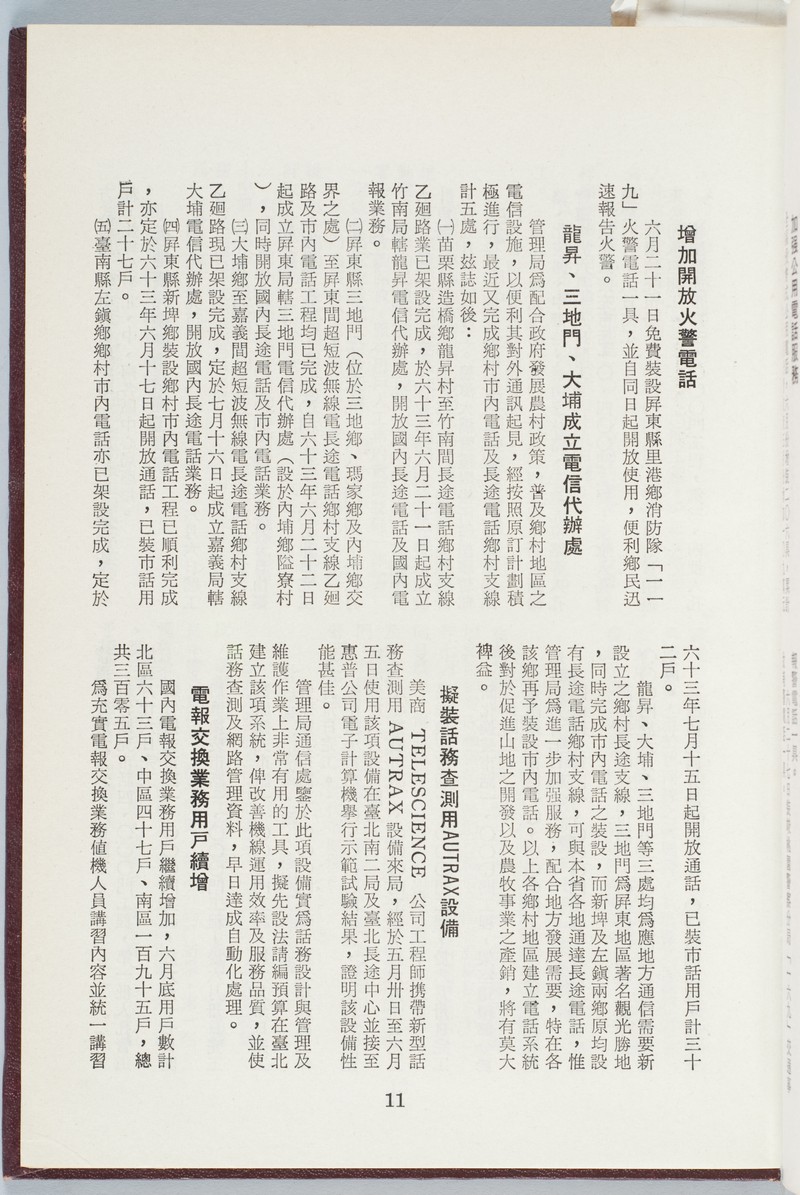 增加開放火警電話
六月二十一日免費裝設屏東縣里港鄉消防隊「一一
九」火警電話一具，並自同日起開放使用，便利鄉民迅
速報告火警。
龍昇、三地門、大埔成立電信代辦處
管理局爲配合政府發展農村政策，普及鄉村地區之
電信設施，以便利其對外通訊起見，經按照原訂計劃積
極進行，最近又完成鄉村市內電話及長途電話鄉村支線
計五處，玆誌如後：
㈠苗栗縣造橋鄉龍昇村至竹南間長途電話鄉村支線
乙廻路業已架設完成，於六十三年六月二十一日起成立
竹南局轄龍昇電信代辦處，開放國內長途電話及國內電
報業務。
㈡屏東縣三地門（位於三地鄉、瑪家鄉及內埔鄉交
界之處）至屏東間超短波無線電長途電話鄉村支線乙廻
路及市內電話工程均已完成，自六十三年六月二十二日
起成立屏東局轄三地門電信代辦處（設於內埔鄉隘寮村
），同時開放國內長途電話及市內電話業務。
㈢大埔鄉至嘉義間超短波無線電長途電話鄉村支線
乙廻路現已架設完成，定於七月十六日起成立嘉義局轄
大埔電信代辦處，開放國內長途電話業務。
㈣屏東縣新埤鄉裝設鄉村市內電話工程已順利完成
，亦定於六十三年六月十七日起開放通話，已裝市話用
戶計二十七戶。
㈤臺南縣左鎭鄉鄉村市內電話亦已架設完成，定於
六十三年七月十五日起開放通話，已裝市話用戶計三十
二戶。
龍昇、大埔、三地門等三處均爲應地方通信需要新
設立之鄉村長途支線，三地門爲屏東地區著名觀光勝地
，同時完成市內電話之裝設，而新埤及左鎭兩鄉原均設
有長途電話鄉村支線，可與本省各地通達長途電話，惟
管理局爲進一步加强服務，配合地方發展需要，特在各
該鄉再予裝設市內電話。以上各鄉村地區建立電話系統
後對於促進山地之開發以及農牧事業之產銷，將有莫大
裨益。
擬裝話務查測用AUTRAX設備
美商 TELESCIENCE 公司工程師携帶新型話
務查測用 AUTRAX 設備來局，經於五月卅日至六月
五日使用該項設備在臺北南二局及臺北長途中心並接至
惠普公司電子計算機舉行示範試驗結果，證明該設備性
能甚佳。
管理局通信處鑒於此項設備實爲話務設計與管理及
維護作業上非常有用的工具，擬先設法請編預算在臺北
建立該項系統，俾改善機線運用效率及服務品質，並使
話務查測及網路管理資料，早日達成自動化處理。
電報交換業務用戶續增
國內電報交換業務用戶繼續增加，六月底用戶數計
北區六十三戶、中區四十七戶、南區一百九十五戶，總
共三百零五戶。
爲充實電報交換業務値機人員講習內容並統一講習
11